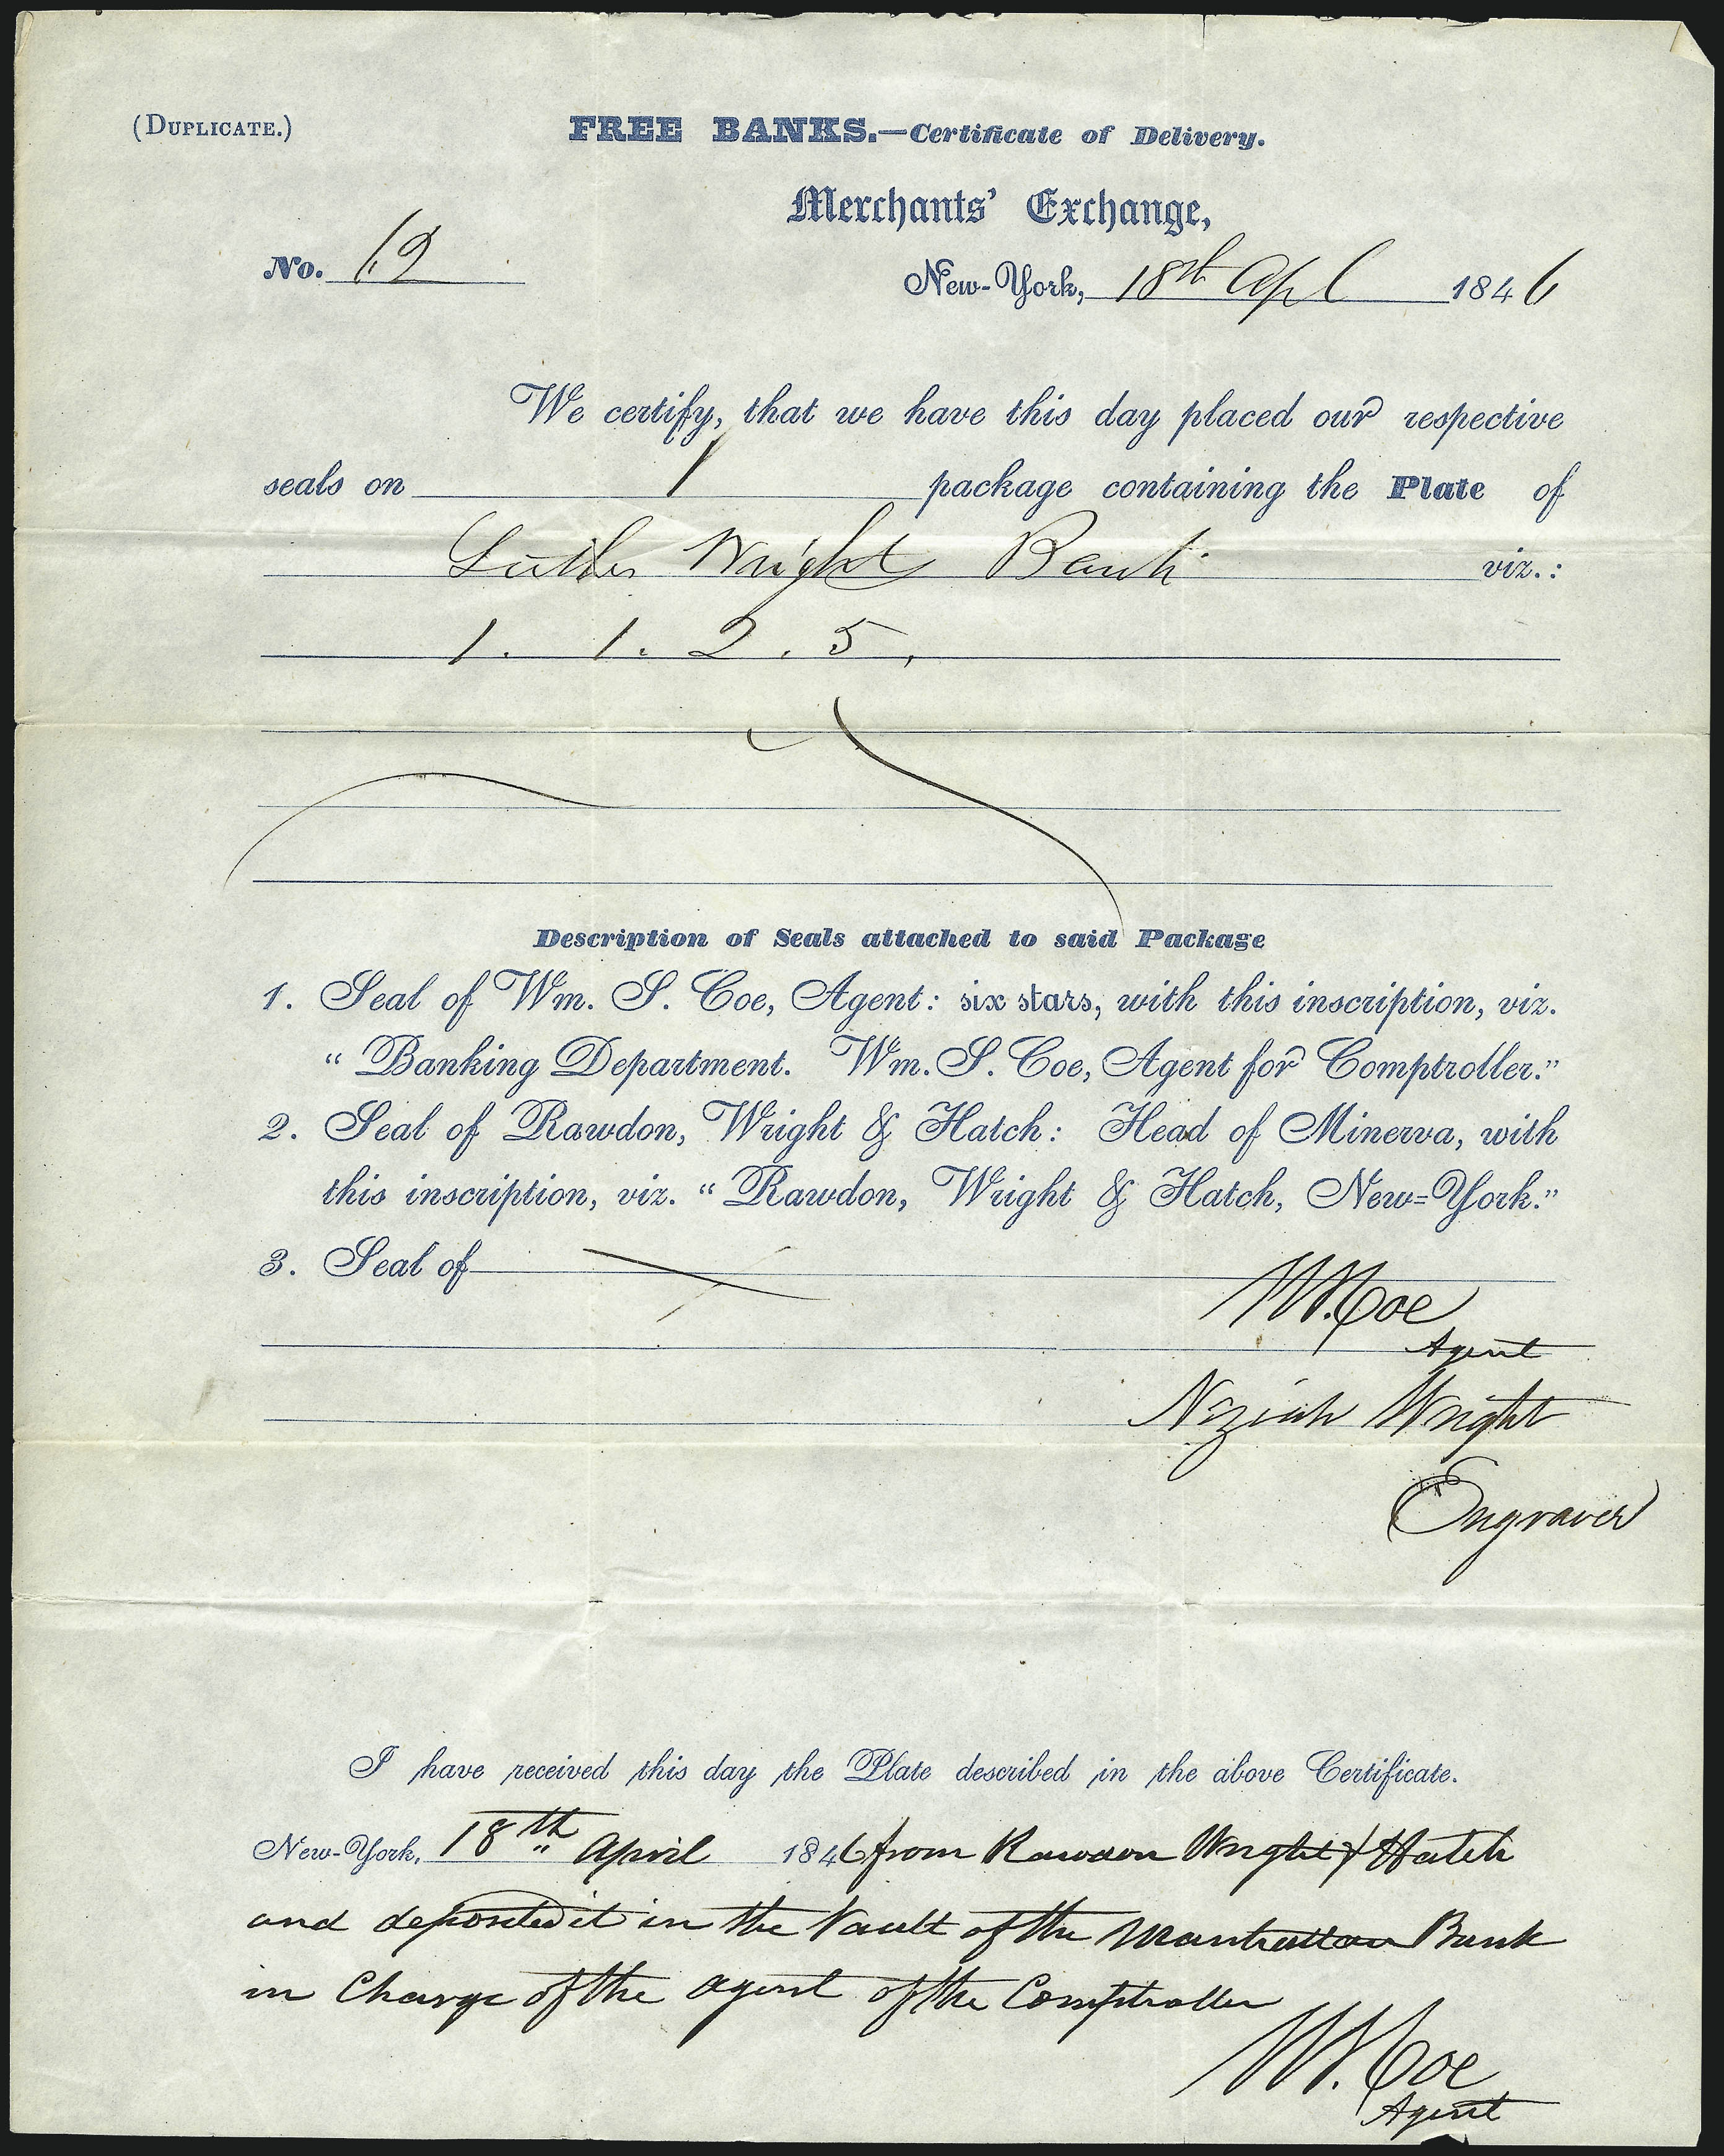 (DUPLICATE.)
FREE BANKS.—Certificate of Delivery.
Merchants' Exchange,
No. 62
New-York, 18th Apl 1846
We certify, that we have this day placed our respective
seals on 1 package containing the Plate of
Luther Wright Bank viz.:
1. 1. 2. 5,
Description of Seals attached to said Package
1. Seal of Wm. S. Coe, Agent: six stars, with this inscription, viz.
“ Banking Department. Wm. S. Coe, Agent for Comptroller.”
2. Seal of Rawdon, Wright & Hatch: Head of Minerva, with
this inscription, viz. “ Rawdon, Wright & Hatch, New=York.”
3. Seal of
W. Coe
Agent
Neziah Wright
Engraver
I have received this day the Plate described in the above Certificate.
New-York, 18th April 1846 from Rawdon Wright & Hatch
and deposited it in the Vault of the Manhattan Bank
in Charge of the agent of the Comptroller
W. Coe
Agent